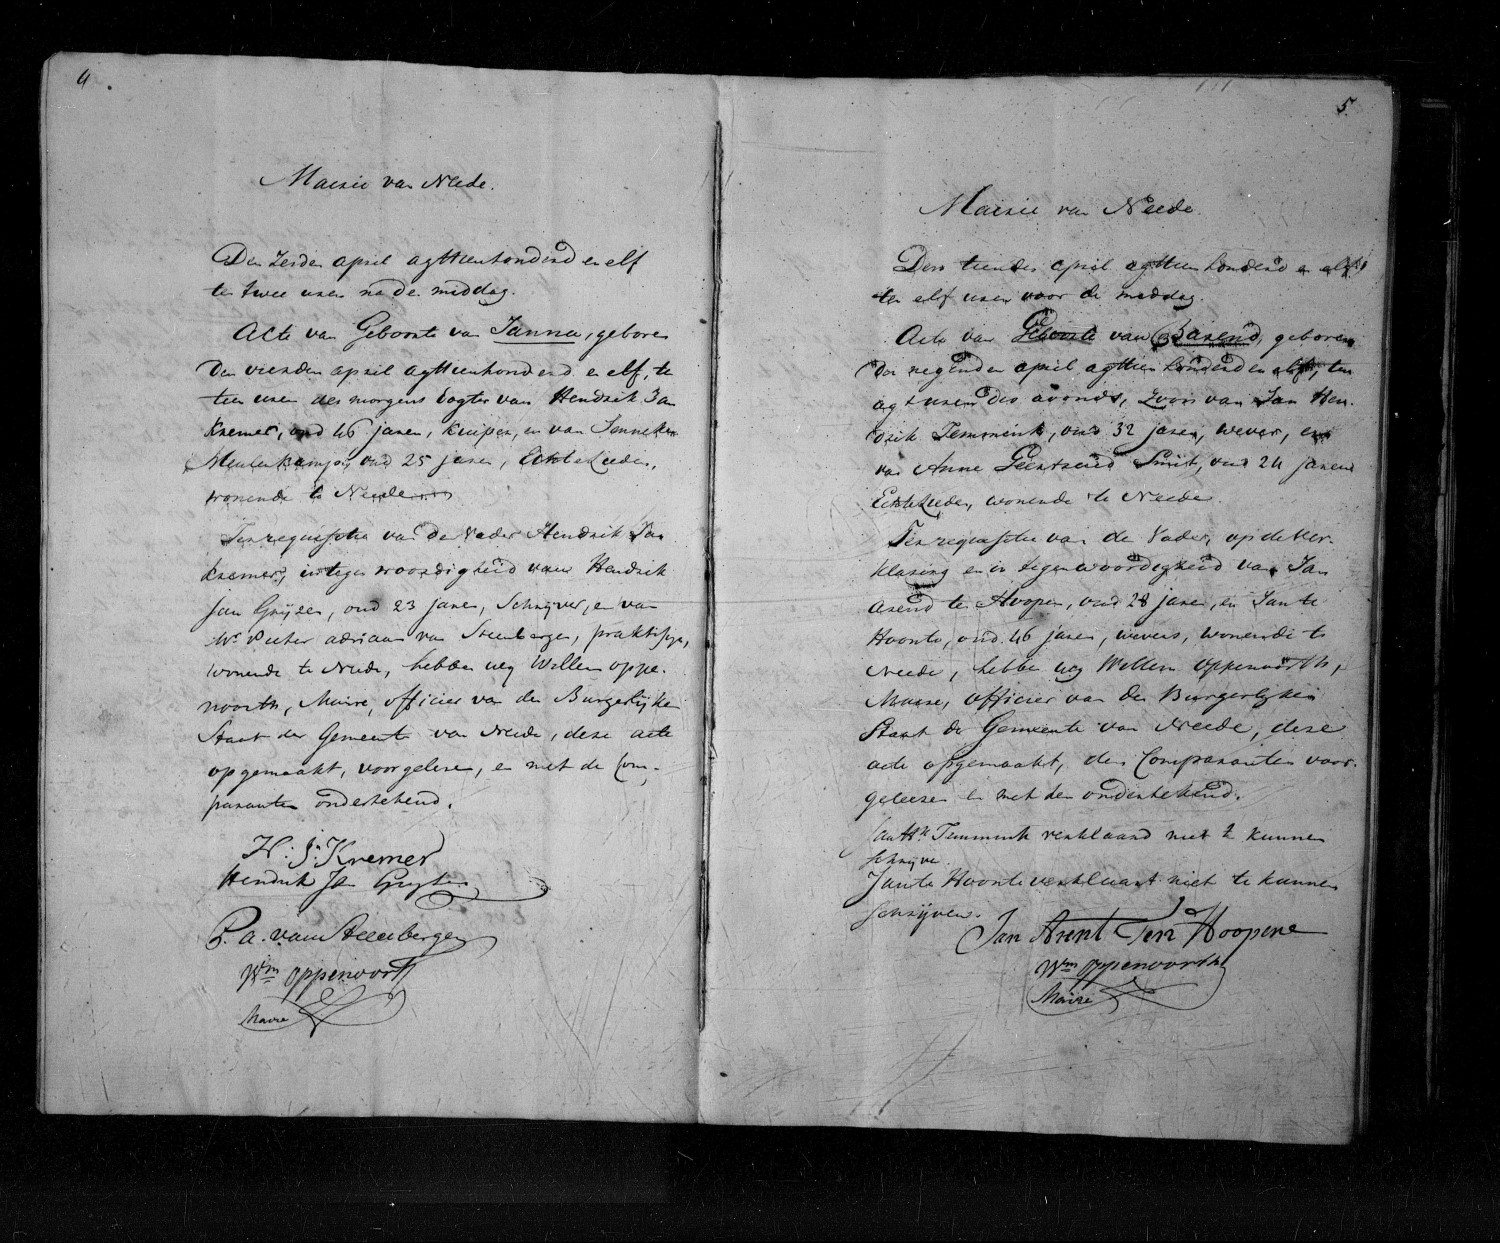 4
Mairie van Neede.
Den Zesden april agttienhonderd en elf
ten twee uren na den middag.
Acte van Geboorte van Janna, geboren
den vierden april agttienhonderd en elf, te
tien uren des morgens dogter van Hendrik Jan
Kremer, oud 46 jaren, kuiper, en van Janneken
Meulenkamp, oud 25 jaren, Echte Lieden,
wonende te Neede
Ter requisitie van de Vader Hendrik Jan
Kremer, in tegenwoordigheid van Hendrik
Jan Gruijters, oud 23 jaren, Schrijver, en van
Mr. Pieter adriaan van Steenbergen, praktisijn,
wonende te Neede, hebben wij Willem oppe-
noorth, Maire, officier van den Burgerlijken
Staat der Gemeente van Neede, deze acte
opgemaakt, voorgelezen, en met de Com-
paranten onderteekend.
H: J: Kremer
Hendrik Jan
P. a. van Steenbergen
Wm oppenoorth
Maire
5.
Mairie van Neede.
Den tienden april agttien honderd en elf
ten elf uren voor de middag.
Acte van Geboorte van Barend, geboren
den negenden april agttien honderd en elf, ten
agt uren des avonds, Zoon van Jan Hen-
drik Temmink, oud 32 jaren, wever, en
van Anne Geertruid Smit, oud 24 jaren
Echte Lieden, wonende te Neede.
Ter requisitie van de Vader, op de ver-
klaring en in tegenwoordigheid van Jan
Arend ten Hoopen, oud 28 jaren, en Jan te
Hoonte, oud 46 jaren, wevers, wonende te
Neede, hebben wij Willem oppenoorth,
Maire, officier van den Burgerlijken
Staat der Gemeente van Neede, deze
acte opgemaakt, den Comparanten voor-
gelezen en met hen onderteekend.
Jan Hk Temmink verklaard niet te kunnen
schrijven.
Jan te Hoonte verklaart niet te kunnen
schrijven.
Jan Arent Ten Hoopene
Wm oppenoorth
Maire